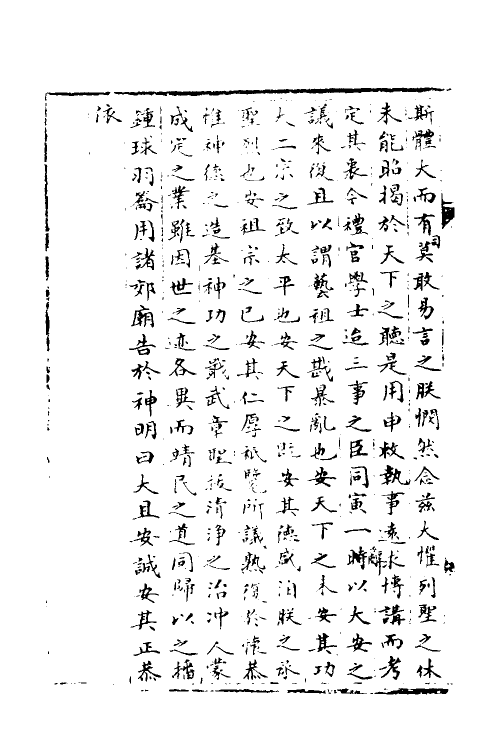 斯體大而有司莫敢易言之朕憫然念茲大懼列聖之休
未能昭揭於天下之聽是用申敕執事遠求博講而考
定其衷今禮官學士迨三事之臣同寅一時以大安之
議來復且以謂藝祖之戡暴亂也安天下之未安其功
大二宗之致太平也安天下之既安其德盛洎朕之承
聖烈也安祖宗之已安其仁厚祗覽所議熟復於懷恭
惟神德之造基神功之戢武章聖恢清淨之治冲人蒙
成定之業雖因世之迹各異而靖民之道同歸以之播
鍾球羽籥用諸郊廟告於神明曰大且安誠安其正恭
依